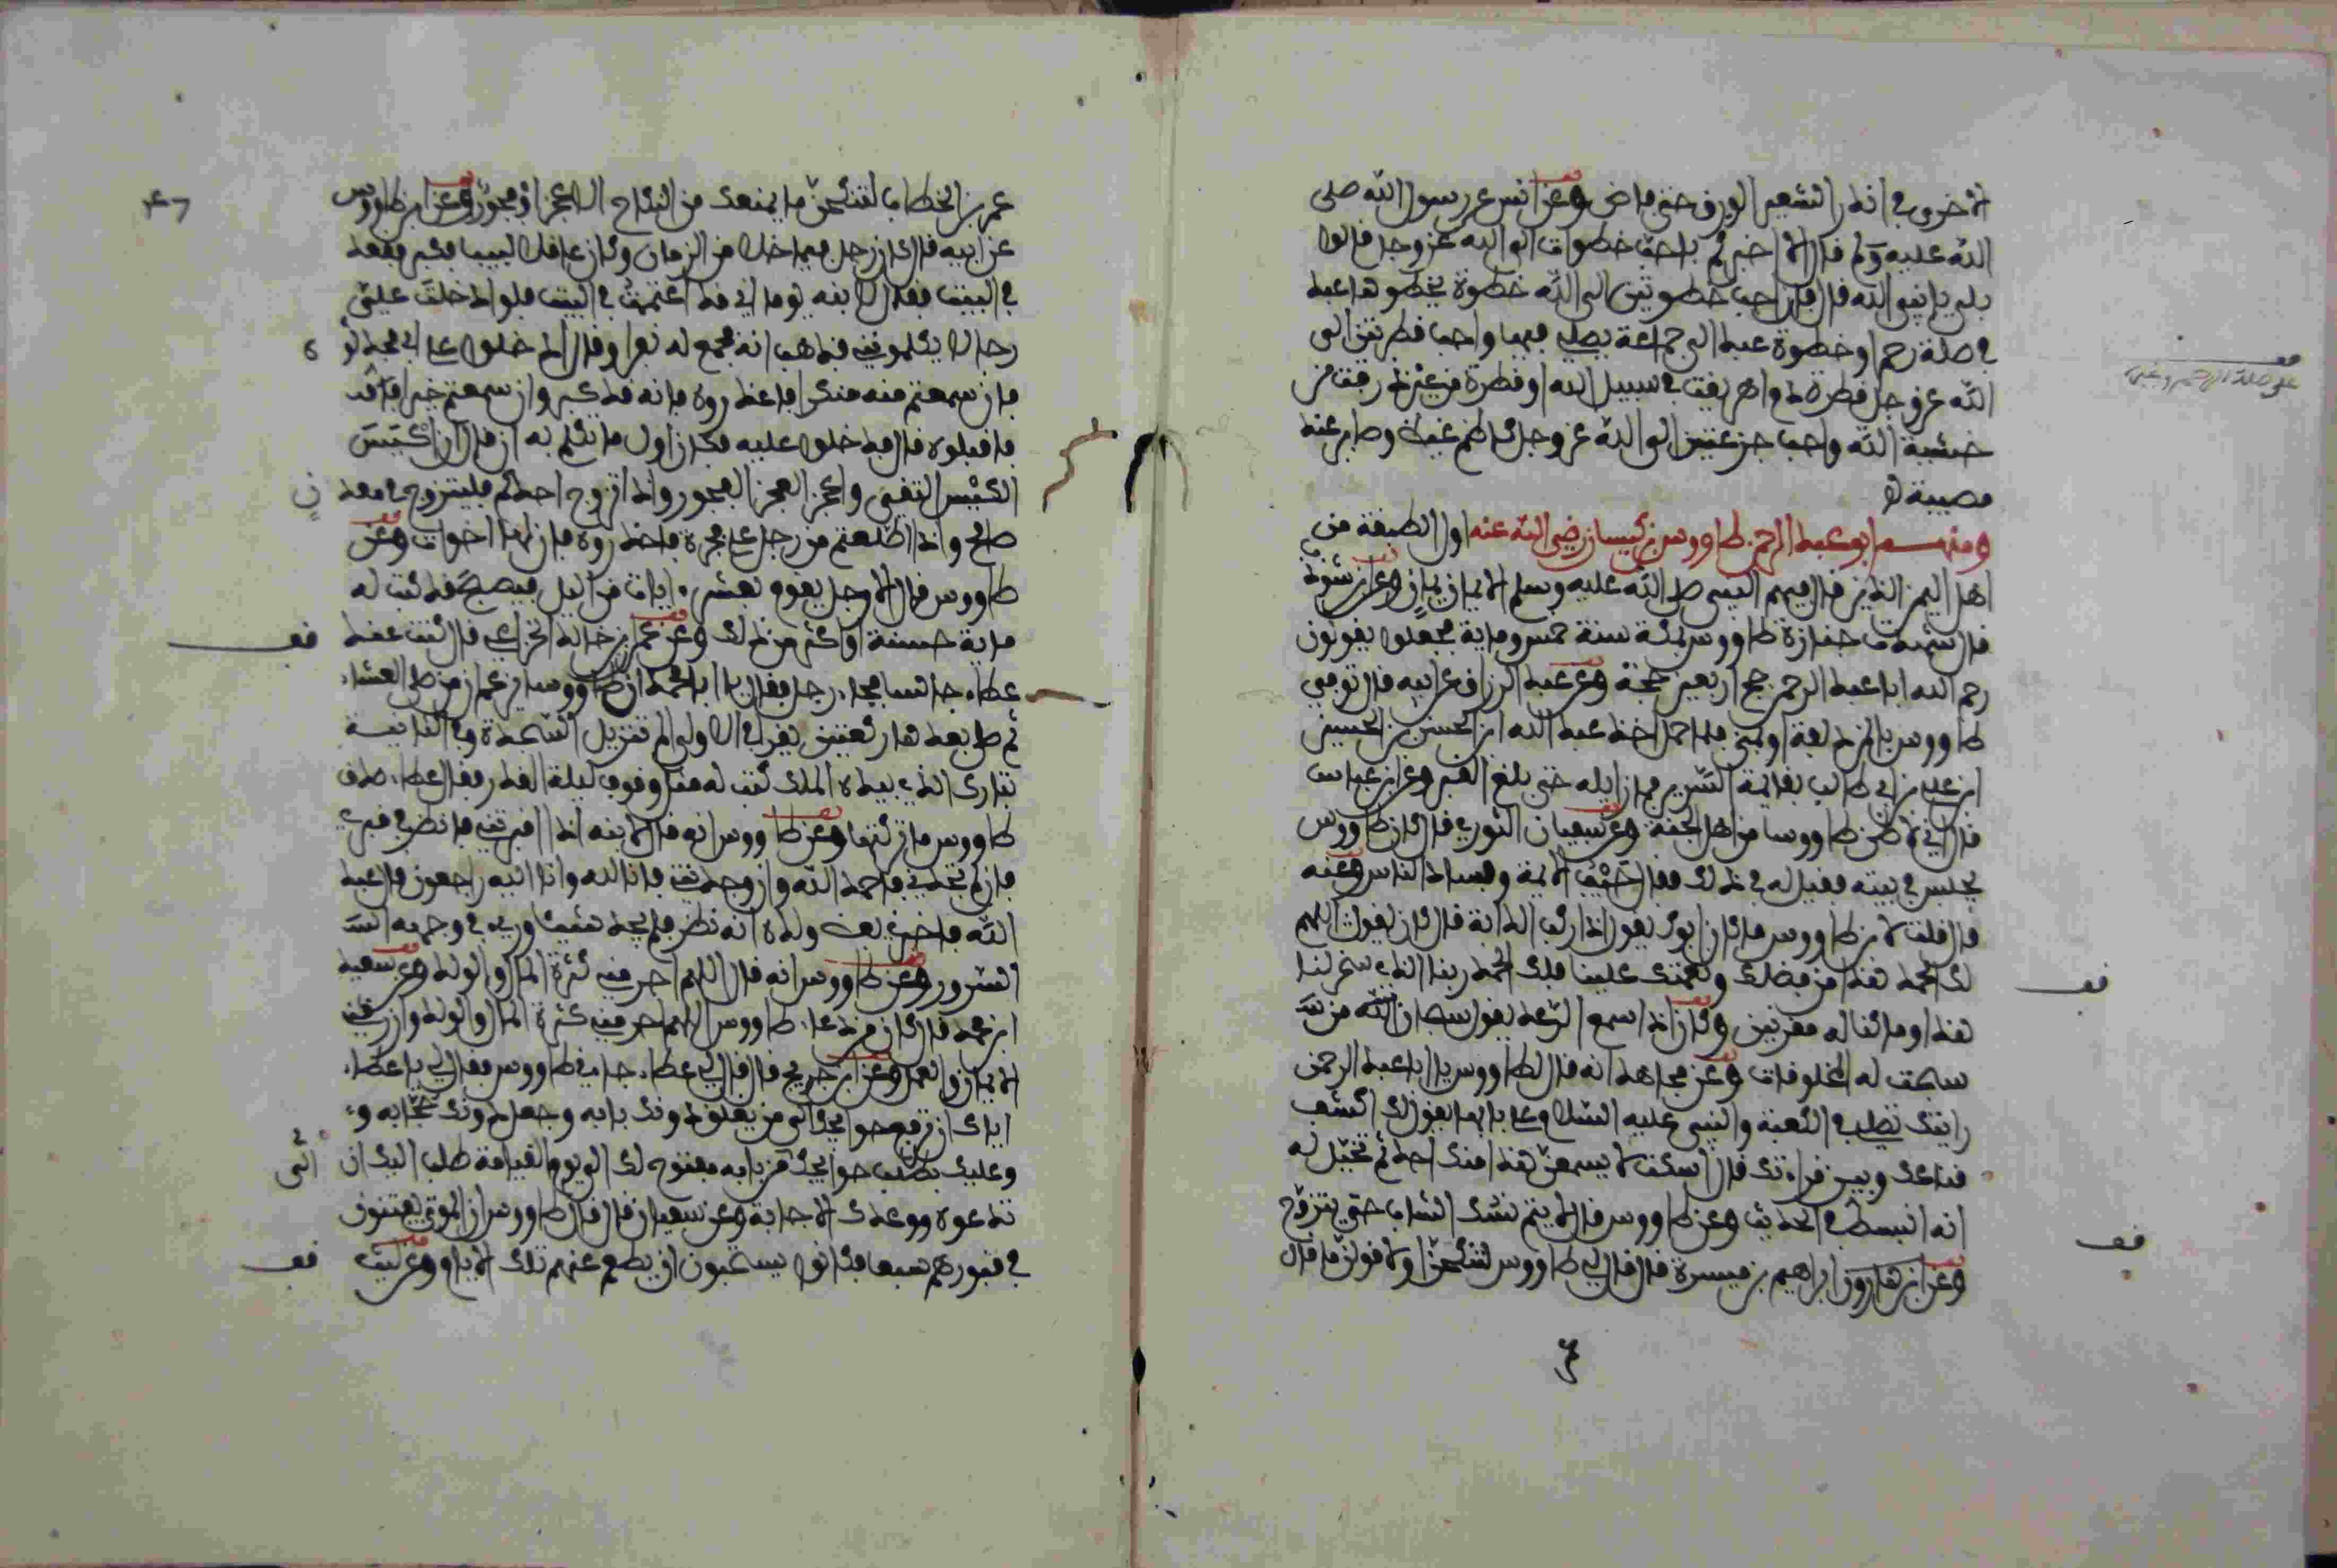 الأخرى في انذار الشعير الورق حتى ماض وعن انس عن رسول الله صلى
الله عليه وسلم قال الا اخبركم باحب خطوات الى الله عز وجل قالوا
بلى يا نبي الله قال فان احب خطوتين الى الله خطوة يخطوها عبد
في صلة رحم او خطوة عبد الى جماعة يصلي فيها واحب قطرتين الى
الله عز وجل قطرة دم اهريقت في سبيل الله او قطرة من عين ذرفت من
خشية الله واحب جرعتين الى الله عز وجل كاظم غيظه وصابر عند
مصيبة
ومنهم ابو عبد الرحمن طاووس بن كيسان رضي الله عنه اول الطبقة من
اهل اليمن الذين قال فيهم النبي صلى الله عليه وسلم الايمان يمان وعن ابن شوذب
قال شهدت جنازة طاووس بمكة سنة خمس وماية فجعلوا يقولون
رحم الله ابا عبد الرحمن حج اربعين حجة وعن عبد الرزاق عن ابيه قال توفي
طاووس بالمزدلفة او بمنى فلما حمل اخذ عبد الله ابن الحسن بن الحسين
ابن علي بن ابي طالب بقائمة السرير فما زايله حتى بلغ القبر وعن ابن عباس
قال اني لاظن طاووسا من اهل الجنة وعن سفيان الثوري قال كان طاووس
يجلس في بيته فقيل له في ذلك فقال حيف الايمة وفساد الناس وعنه
قال قلت لابن طاووس ما كان ابوك يقول اذا ركب الدابة قال كان يقول اللهم
لك الحمد هذا من فضلك ونعمتك علينا فلك الحمد ربنا الذي سخر لنا
هذا وما كنا له مقرنين وكان اذا سمع الرعد يقول سبحان الله من
سبحت له المخلوقات وعن مجاهد انه قال لطاووس يا ابا عبد الرحمن
رايتك تصلي في الكعبة والنبي عليه السلام على بابها يقول لك اكشف
قناعك وبين قراءتك قال اسكت لا يسمعن هذا منك احد ثم تخيل له
انه انبسط في الحديث وعن طاووس قال لا يتم نسك الشاب حتى يتزوج
وعن ابن هارون ابراهيم بن ميسرة قال قال لي طاووس لتنكحن او لاقولن ما قال
عمر
عمر بن الخطاب لتنكحن ما يمنعك من النكاح الا عجز او فجور وعن ابن طاووس
عن ابيه قال كان رجل فيما خلا من الزمان وكان عاقلا لبيبا فكبر فقعد
في البيت فقال لابنه يوما اني قد اغتممت في البيت فلو ادخلت علي
رجالا يكلمونني فذهب ابنه فجمع له نفرا وقال ادخلوا على ابي فحدثوه
فان سمعتم منه منكرا فاعذروه فانه قد كبر وان سمعتم خيرا
فاقبلوه قال فدخلوا عليه فكان اول ما تكلم به ان قال ان اكيس
الكيس التقى واعجز العجز الفجور واذا تزوج احدكم فليتزوج في معدن
صالح واذا اطلعتم من رجل على فجرة فاحذروه فان لها اخوات وعن
طاووس قال الا رجل يقوم بعشر ايات من اليل فيصبح قد كتب له
ماية حسنة او اكثر من ذلك وعن عمر بن خالد الخزاعي قال كنت عند
عطاء جالسا فجاء رجل فقال يا ابا محمد ان طاووسا يزعم ان من صلى العشاء
ثم صلى بعدها ركعتين يقرا في الاولى الم تنزيل السجدة وفي الثانية
تبارك الذي بيده الملك كتب له مثل وقوف ليلة القدر فقال عطاء صدق
طاووس ما تركتهما وعن طاووس انه قال لابنه اذا اقبرتني فانظر في قبري
فان لم تجدني فاحمد الله وان وجدتني فانا لله وانا اليه راجعون قال عبد
الله فاخبرني بعض ولده انه نظر فلم يجد شيئا وريي في وجهه
السرور وعن طاووس انه قال اللهم احرمني كثرة المال والولد وعن سعيد
ابن محمد قال كان من دعاء طاووس اللهم احرمني كثرة المال والولد وارزقني
الايمان والعمل وعن ابن جريج قال قال لي عطاء جاءني طاووس فقال لي يا عطاء
اياك ان ترفع حوايجك الى من يغلق دونك بابه وجعل دونك حجابه و
وعليك بطلب حوايجك ممن بابه مفتوح لك الى يوم القيامة طلب اليك ان
تدعوه ووعدك الاجابة وعن سفيان قال قال طاووس ان الموتى يفتنون
في قبورهم سبعا فكانوا يستحبون ان يطعم عنهم تلك الايام وعن ليث